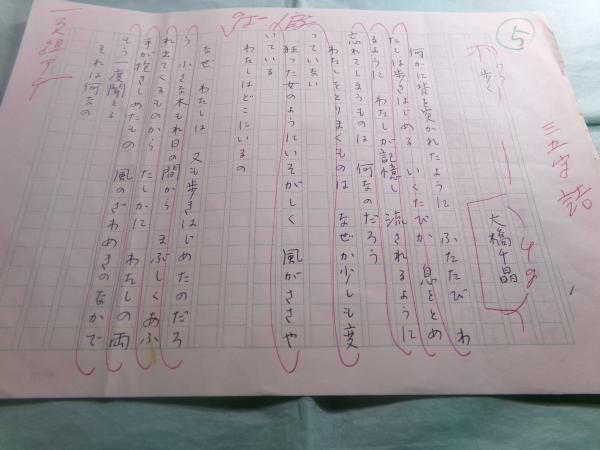 ⑤
三五字詰
歩く
大橋千晶
何かに背を突かれたように ふたたび わ
たしは歩きはじめる いくたびか 息をとめ
るように わたしが記憶し 流されるように
忘れてしまうものは 何なのだろう
わたしをとりまくものは なぜか少しも変
っていない
狂った女のようにいそがしく 風がささや
いている
わたしはどこにいるの
なぜ わたしは 又も歩きはじめたのだろ
う 小さな木もれ日の間から まぶしくあふ
れ出てくるものから たしかに わたしの両
手が抱きしめたもの 風のざわめきのなかで
もう一度聞える
それは何なの